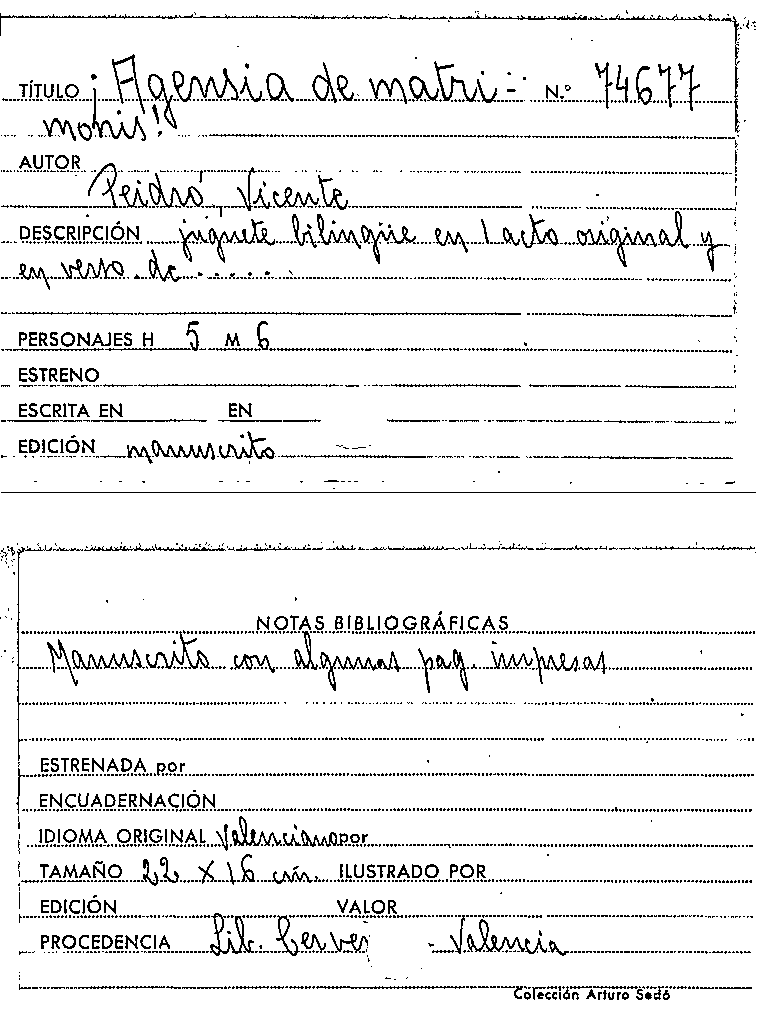 TÍTULO ¡Agensia de matri- N.º 74677
monis!
AUTOR
Peidró, Vicente
DESCRIPCIÓN juguete bilingüe en 1 acto original y
en verso de .....
PERSONAJES H 5 M 6
ESTRENO
ESCRITA EN EN
EDICIÓN manuscrito
NOTAS BIBLIOGRÁFICAS
Manuscrito con algunas pag. impresas
ESTRENADA por
ENCUADERNACIÓN
IDIOMA ORIGINAL Valenciano por
TAMAÑO 22 X 16 cm. ILUSTRADO POR
EDICIÓN VALOR
PROCEDENCIA Lib. Cerve - Valencia
Colección Arturo Sedó